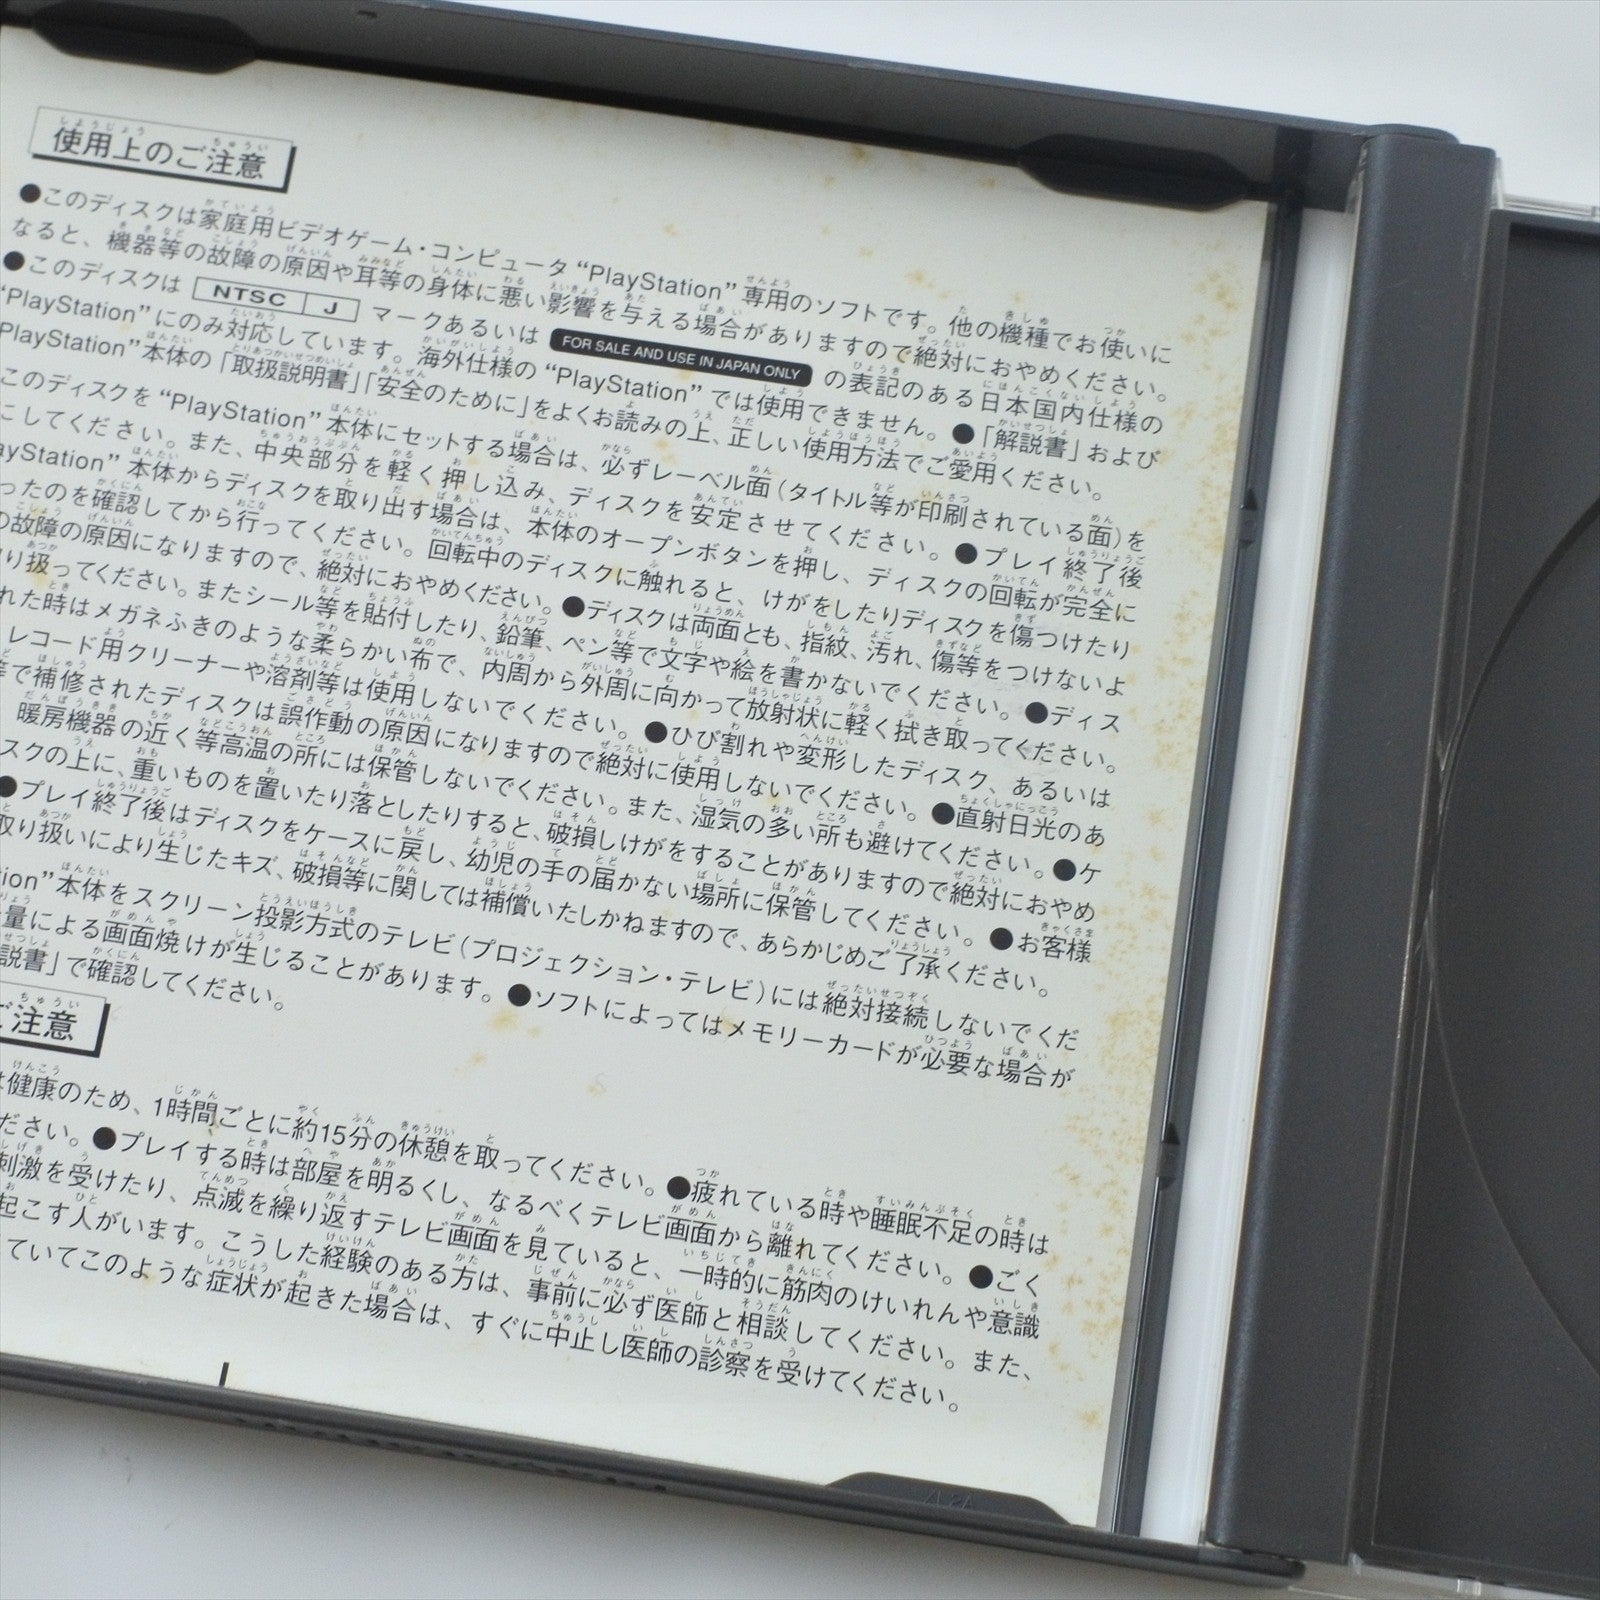 使用上のご注意
●このディスクは家庭用ビデオゲーム・コンピュータ“PlayStation”専用のソフトです。他の機種でお使いに
なると、機器等の故障の原因や耳等の身体に悪い影響を与える場合がありますので絶対におやめください。
●このディスクは NTSC J マークあるいは FOR SALE AND USE IN JAPAN ONLY の表記のある日本国内仕様の
“PlayStation”にのみ対応しています。海外仕様の“PlayStation”では使用できません。●「解説書」および
PlayStation”本体の「取扱説明書」「安全のために」をよくお読みの上、正しい使用方法でご愛用ください。
このディスクを“PlayStation”本体にセットする場合は、必ずレーベル面(タイトル等が印刷されている面)を
にしてください。また、中央部分を軽く押し込み、ディスクを安定させてください。●プレイ終了後
ayStation”本体からディスクを取り出す場合は、本体のオープンボタンを押し、ディスクの回転が完全に
ったのを確認してから行ってください。回転中のディスクに触れると、けがをしたりディスクを傷つけたり
の故障の原因になりますので、絶対におやめください。●ディスクは両面とも、指紋、汚れ、傷等をつけないよ
り扱ってください。またシール等を貼付したり、鉛筆、ペン等で文字や絵を書かないでください。●ディス
れた時はメガネふきのような柔らかい布で、内周から外周に向かって放射状に軽く拭き取ってください。
レコード用クリーナーや溶剤等は使用しないでください。●ひび割れや変形したディスク、あるいは
等で補修されたディスクは誤作動の原因になりますので絶対に使用しないでください。●直射日光のあ
暖房機器の近く等高温の所には保管しないでください。また、湿気の多い所も避けてください。●ケ
スクの上に、重いものを置いたり落としたりすると、破損しけがをすることがありますので絶対におやめ
●プレイ終了後はディスクをケースに戻し、幼児の手の届かない場所に保管してください。●お客様
取り扱いにより生じたキズ、破損等に関しては補償いたしかねますので、あらかじめご了承ください。
tion”本体をスクリーン投影方式のテレビ(プロジェクション・テレビ)には絶対接続しないでくだ
量による画面焼けが生じることがあります。●ソフトによってはメモリーカードが必要な場合が
説書」で確認してください。
ご注意
は健康のため、1時間ごとに約15分の休憩を取ってください。●疲れている時や睡眠不足の時は
ださい。●プレイする時は部屋を明るくし、なるべくテレビ画面から離れてください。●ごく
刺激を受けたり、点滅を繰り返すテレビ画面を見ていると、一時的に筋肉のけいれんや意識
起こす人がいます。こうした経験のある方は、事前に必ず医師と相談してください。また、
ていてこのような症状が起きた場合は、すぐに中止し医師の診察を受けてください。